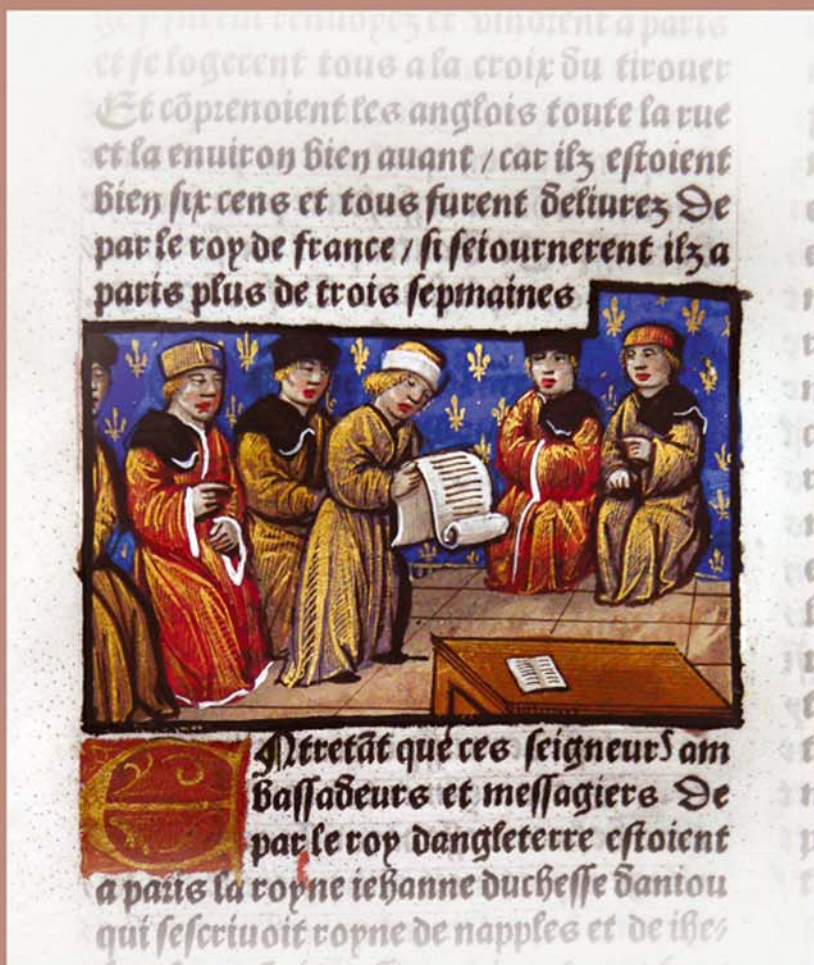 et se logerent tous a la croix du tirouer
Et cōprenoient les anglois toute la rue
et la enuiron bien auant / car ilz estoient
bien six cens et tous furent deliurez De
par le roy de france / si seiournerent ilz a
paris plus de trois sepmaines
Entretāt que ces seigneurs am
bassadeurs et messagiers De
par le roy dangleterre estoient
a paris la royne iehanne duchesse daniou
qui sescriuoit royne de napples et de ihe/